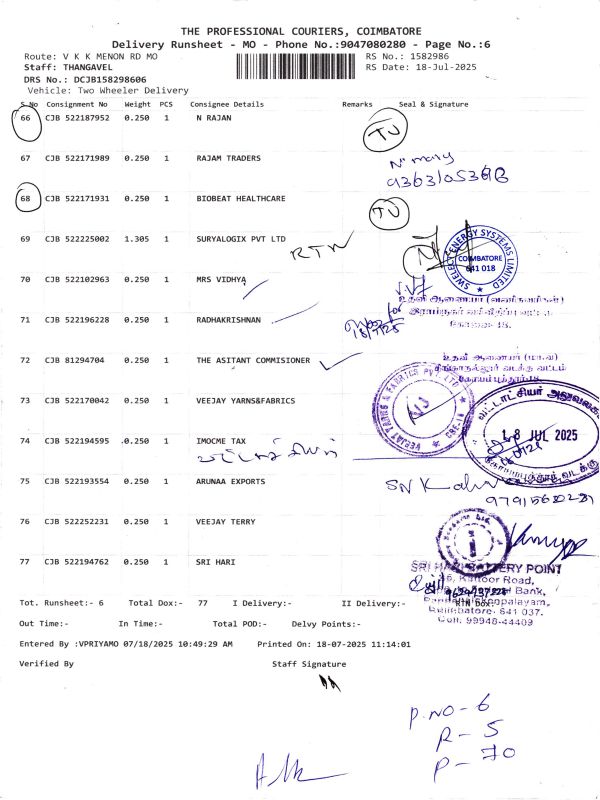 THE PROFESSIONAL COURIERS, COIMBATORE
Delivery Runsheet - MO - Phone No.:9047080280 - Page No.:6
Route: V K K MENON RD MO RS No.: 1582986
Staff: THANGAVEL RS Date: 18-Jul-2025
DRS No.: DCJB158298606
Vehicle: Two Wheeler Delivery
S.No Consignment No Weight PCS Consignee Details Remarks Seal & Signature
66 CJB 522187952 0.250 1 N RAJAN
67 CJB 522171989 0.250 1 RAJAM TRADERS
68 CJB 522171931 0.250 1 BIOBEAT HEALTHCARE
69 CJB 522225002 1.305 1 SURYALOGIX PVT LTD RTN
SWELECT ENERGY SYSTEMS LIMITED
COIMBATORE
641 018
70 CJB 522102963 0.250 1 MRS VIDHYA
உதவி ஆணையர் (வணிகவரிகள்)
71 CJB 522196228 0.250 1 RADHAKRISHNAN
72 CJB 81294704 0.250 1 THE ASITANT COMMISIONER
73 CJB 522170042 0.250 1 VEEJAY YARNS&FABRICS
VEEJAY YARNS & FABRICS PVT. LTD
18 JUL 2025
74 CJB 522194595 0.250 1 IMOCME TAX
75 CJB 522193554 0.250 1 ARUNAA EXPORTS
76 CJB 522252231 0.250 1 VEEJAY TERRY
77 CJB 522194762 0.250 1 SRI HARI
SRI HARI BATTERY POINT
Coimbatore- 641 037.
Cell: 99948-44409
Tot. Runsheet:- 6 Total Dox:- 77 I Delivery:- II Delivery:- RTN Dox:-
Out Time:- In Time:- Total POD:- Delvy Points:-
Entered By :VPRIYAMO 07/18/2025 10:49:29 AM Printed On: 18-07-2025 11:14:01
Verified By Staff Signature
P.NO - 6
R - 5
P - 70